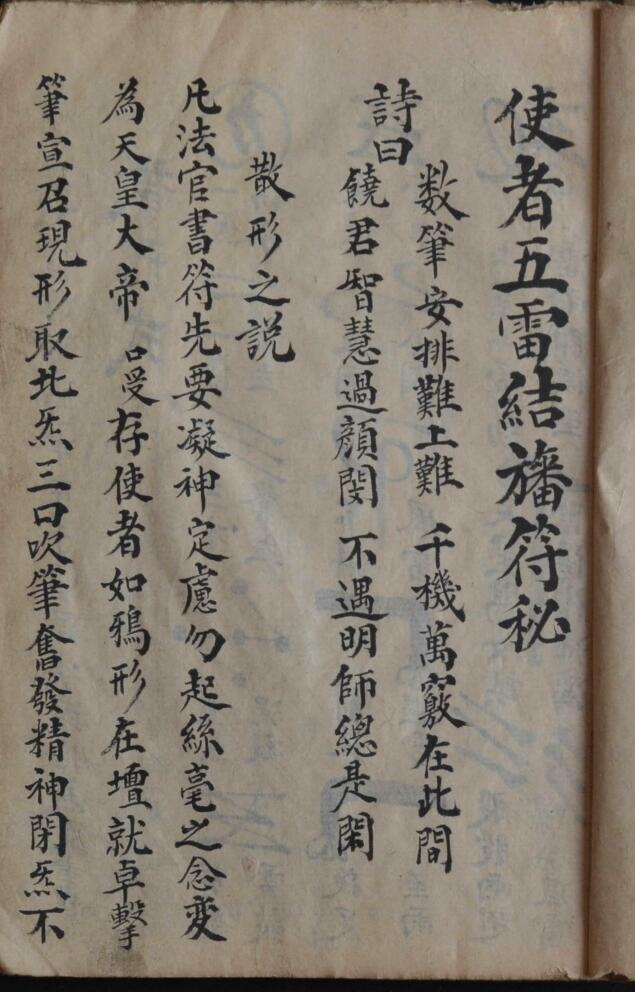 使者五雷結旛符秘
詩曰
数筆安排難上難 千機萬竅在此間
饒君智慧過顔閔 不遇明師總是閑
散形之説
凡法官書符先要凝神定慮勿起絲毫之念变
為天皇大帝 口受存使者如鴉形在壇就卓擊
筆宣召現形取北炁三口吹筆奮發精神閉炁不